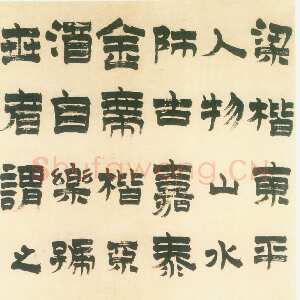 梁楷東平
人物山水
師古嘉泰
金帶楷
酒自樂號
者謂之
Shufawang.cn